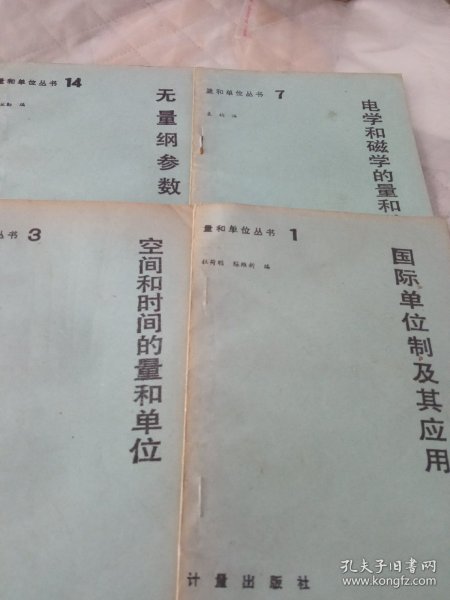 量和单位丛书 14
编
无量纲参数
量和单位丛书 7
编
电学和磁学的量和
丛书 3
空间和时间的量和单位
量和单位丛书 1
杜荷聪 陈维新 编
国际单位制及其应用
计量出版社
孔夫子旧书网
www.kongfz.com